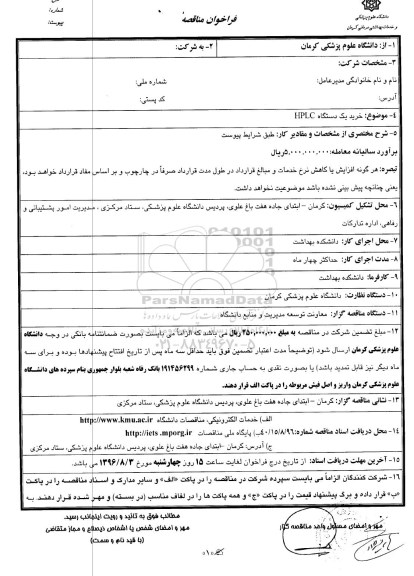 دانشگاه علوم پزشکی
و خدمات بهداشتی درمانی کرمان
فراخوان مناقصه
شماره:
پیوست:
۱- از: دانشگاه علوم پزشکی کرمان
۲- به شرکت:
۳- مشخصات شرکت:
نام و نام خانوادگی مدیرعامل:
شماره ملی:
آدرس:
کد پستی:
۴- موضوع: خرید یک دستگاه HPLC
۵- شرح مختصری از مشخصات و مقادیر کار: طبق شرایط پیوست
برآورد سالیانه معامله: ۵,۰۰۰,۰۰۰,۰۰۰ریال
تبصره: هر گونه افزایش یا کاهش نرخ خدمات و مبالغ قرارداد در طول مدت قرارداد صرفاً در چارچوب و بر اساس مفاد قرارداد خواهد بود،
یعنی چنانچه پیش بینی نشده باشد موضوعیت نخواهد داشت.
۶- محل تشکیل کمیسیون: کرمان – ابتدای جاده هفت باغ علوی، پردیس دانشگاه علوم پزشکی، ستاد مرکزی ، مدیریت امور پشتیبانی و
رفاهی، اداره تدارکات
۷- محل اجرای کار: دانشکده بهداشت
۸- مدت اجرای کار: حداکثر چهار ماه
۹- کارفرما: دانشکده بهداشت
۱۰- دستگاه نظارت: دانشگاه علوم پزشکی کرمان
۱۱- دستگاه مناقصه گزار: معاونت توسعه مدیریت و منابع دانشگاه
۱۲- مبلغ تضمین شرکت در مناقصه به مبلغ ۲۵۰,۰۰۰,۰۰۰ ریال می باشد که الزاماً می بایست بصورت ضمانتنامه بانکی در وجه دانشگاه
علوم پزشکی کرمان ارسال شود (توضیحاً مدت اعتبار تضمین فوق باید حداقل سه ماه پس از تاریخ افتتاح پیشنهادها بوده و برای سه
ماه دیگر نیز قابل تمدید باشد) یا بصورت نقدی به حساب جاری شماره ۱۹۱۴۵۶۲۹۹ بانک رفاه شعبه بلوار جمهوری بنام سپرده های دانشگاه
علوم پزشکی کرمان واریز و اصل فیش مربوطه را در پاکت الف قرار دهند.
۱۳- نشانی مناقصه گزار: کرمان – ابتدای جاده هفت باغ علوی، پردیس دانشگاه علوم پزشکی، ستاد مرکزی
الف) خدمات الکترونیکی، مناقصات دانشگاه http://www.kmu.ac.ir
۱۴- محل دریافت اسناد مناقصه شماره: ب) پایگاه ملی مناقصات http://iets.mporg.ir
ج) آدرس: کرمان – ابتدای جاده هفت باغ علوی، پردیس دانشگاه علوم پزشکی، ستاد مرکزی
۱۵- آخرین مهلت دریافت اسناد: از تاریخ درج فراخوان لغایت ساعت ۱۵ روز چهارشنبه مورخ ۱۳۹۶/۸/۳ می باشد.
۱۶- شرکت کنندگان الزاماً می بایست سپرده شرکت در مناقصه را در پاکت «الف» و سایر مدارک و اسناد مناقصه را در پاکت
«ب» قرار داده و برگ پیشنهاد قیمت را در پاکت «ج» و همه پاکت ها را در لفاف مناسب (در بسته) و مهر شده قرار دهند. به
مطالب فوق به تائید و رویت اینجانب رسید.
مهر و امضای شخص یا اشخاص ذیصلاح و مجاز متقاضی
(با قید نام و سمت)
مهر و امضای مسئول واحد مناقصه گذار
ParsNamadData
۰۲۱-۸۸۳۴۹۶۷۰-۵